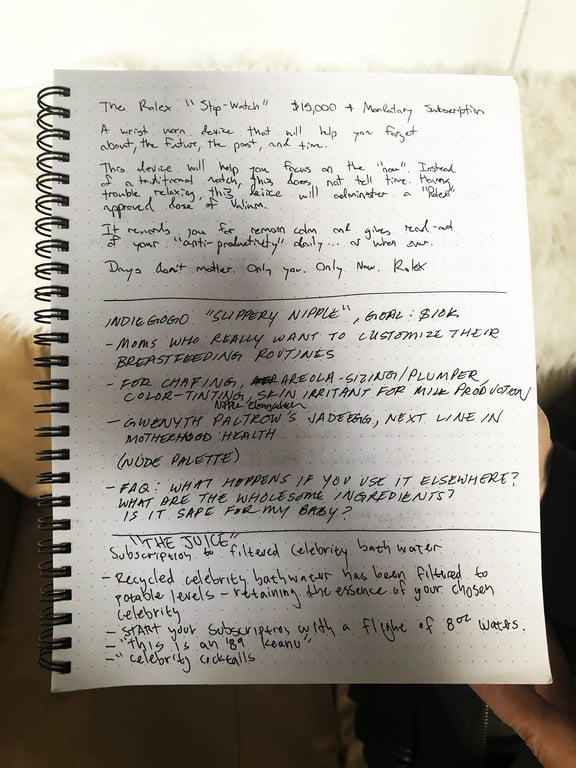 The Rolex "Stop-Watch" $15,000 + Mandatory Subscription
A wrist worn device that will help you forget
about, the future, the past, and time.
This device will help you focus on the "now". Instead
of a traditional watch, this does not tell time. Having
trouble relaxing, this device will administer a "Rolex"
approved dose of Valium.
It rewards you for remain calm and gives read-out
of your "anti-productivity" daily... or when ever.
Days don't matter. Only you. Only Now. Rolex
INDIEGOGO "SLIPPERY NIPPLE", GOAL: $10K
- MOMS WHO REALLY WANT TO CUSTOMIZE THEIR
BREASTFEEDING ROUTINES
- FOR CHAFING, AREOLA-SIZING/PLUMPER,
COLOR-TINTING, SKIN IRRITANT FOR MILK PRODUCTION
NIPPLE Elongation
- GWENYTH PALTROW'S JADEEGG, NEXT LINE IN
MOTHERHOOD HEALTH
(NUDE PALETTE)
- FAQ: WHAT HAPPENS IF YOU USE IT ELSEWHERE?
WHAT ARE THE WHOLESOME INGREDIENTS?
IS IT SAFE FOR MY BABY?
"THE JUICE"
Subscription to filtered celebrity bath water
- Recycled celebrity bathwater has been filtered to
potable levels - retaining the essence of your chosen
celebrity
- START your subscription with a flight of 8oz waters.
- "This is an '89 Keanu"
- "celebrity cocktails